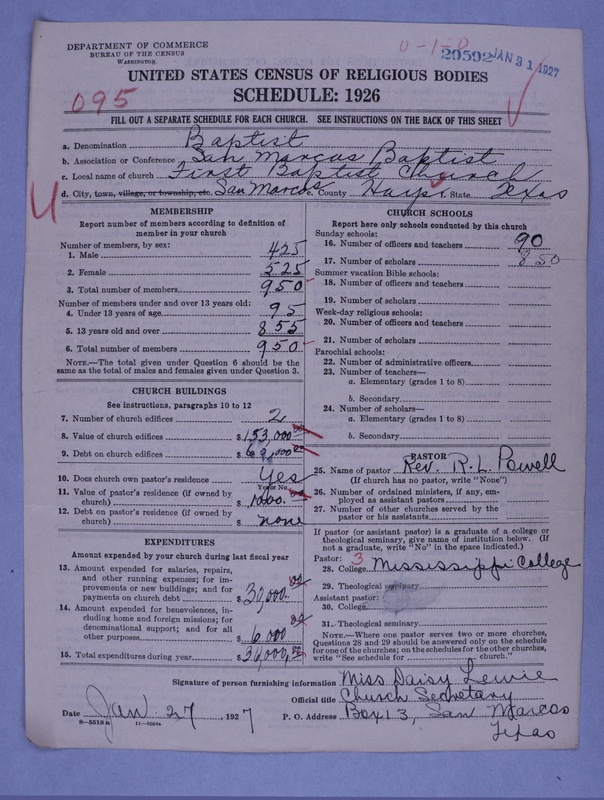 DEPARTMENT OF COMMERCE
BUREAU OF THE CENSUS
WASHINGTON
U-1-D
29592 JAN 31 1927
UNITED STATES CENSUS OF RELIGIOUS BODIES
SCHEDULE: 1926
095
FILL OUT A SEPARATE SCHEDULE FOR EACH CHURCH. SEE INSTRUCTIONS ON THE BACK OF THIS SHEET
a. Denomination Baptist
b. Association or Conference San Marcos Baptist
c. Local name of church First Baptist Church
d. City, town, village, or township, etc. San Marcos e. County Hays f. State Texas
MEMBERSHIP
Report number of members according to definition of
member in your church
Number of members, by sex:
1. Male 425
2. Female 525
3. Total number of members 950
Number of members under and over 13 years old:
4. Under 13 years of age 95
5. 13 years old and over 855
6. Total number of members 950
NOTE.—The total given under Question 6 should be the
same as the total of males and females given under Question 3.
CHURCH BUILDINGS
See instructions, paragraphs 10 to 12
7. Number of church edifices 2
8. Value of church edifices $153,000 00
9. Debt on church edifices $ ,000 00
10. Does church own pastor's residence Yes
Yes or No
11. Value of pastor's residence (if owned by
church) $
12. Debt on pastor's residence (if owned by
church) $ none
EXPENDITURES
Amount expended by your church during last fiscal year
13. Amount expended for salaries, repairs,
and other running expenses; for im-
provements or new buildings; and for
payments on church debt $30,000.00
14. Amount expended for benevolences, in-
cluding home and foreign missions; for
denominational support; and for all
other purposes $6,000 00
15. Total expenditures during year $36,000.00
CHURCH SCHOOLS
Report here only schools conducted by this church
Sunday schools:
16. Number of officers and teachers 90
17. Number of scholars 850
Summer vacation Bible schools:
18. Number of officers and teachers
19. Number of scholars
Week-day religious schools:
20. Number of officers and teachers
21. Number of scholars
Parochial schools:
22. Number of administrative officers
23. Number of teachers—
a. Elementary (grades 1 to 8)
b. Secondary
24. Number of scholars—
a. Elementary (grades 1 to 8)
b. Secondary
PASTOR
25. Name of pastor Rev. R. L. Powell
(If church has no pastor, write "None")
26. Number of ordained ministers, if any, em-
ployed as assistant pastors
27. Number of other churches served by the
pastor or his assistants
If pastor (or assistant pastor) is a graduate of a college or
theological seminary, give name of institution below. (If
not a graduate, write "No" in the space indicated.)
Pastor: 3
28. College Mississippi College
29. Theological seminary
Assistant pastor:
30. College
31. Theological seminary
NOTE.—Where one pastor serves two or more churches,
Questions 28 and 29 should be answered only on the schedule
for one of the churches; on the schedules for the other churches,
write "See schedule for church."
Signature of person furnishing information Miss Daisy Lewie
Official title Church Secretary
Date Jan 27, 1927 P. O. Address Box 13, San Marcos
Texas
8-5518a